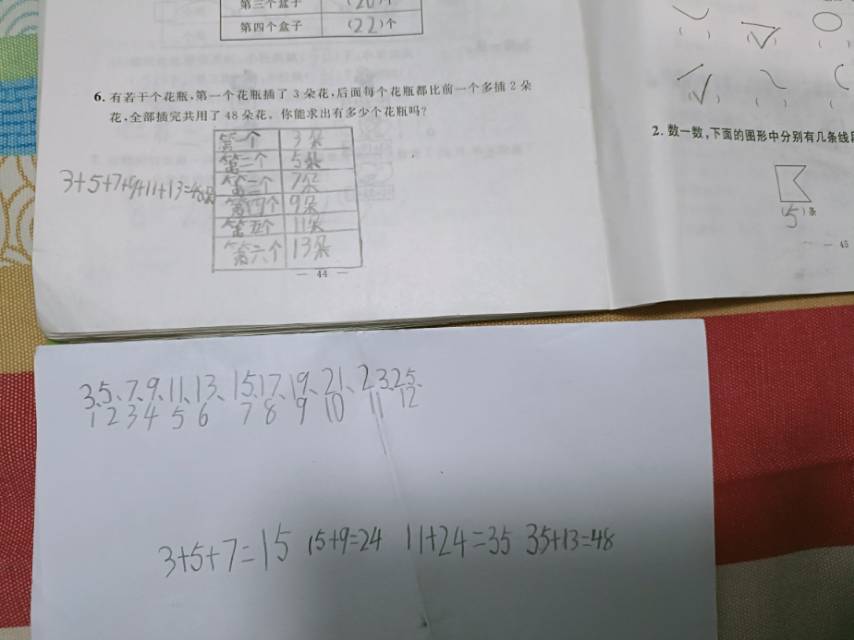 第三个盒子 (20)个
第四个盒子 (22)个
6. 有若干个花瓶,第一个花瓶插了 3 朵花,后面每个花瓶都比前一个多插 2 朵
花,全部插完共用了 48 朵花。你能求出有多少个花瓶吗?
第一个 3朵
第二个 5朵
第三个 7朵
第四个 9朵
第五个 11朵
第六个 13朵
3+5+7+9+11+13=48
— 44 —
2. 数一数,下面的图形中分别有几条线段
(5)条
— 45
3、5、7、9、11、13、15、17、19、21、23、25、
1 2 3 4 5 6 7 8 9 10 11 12
3+5+7=15 15+9=24 11+24=35 35+13=48